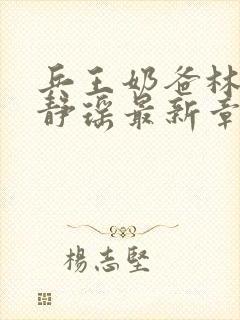 兵王奶爸林
静瑶最新章
楊志堅